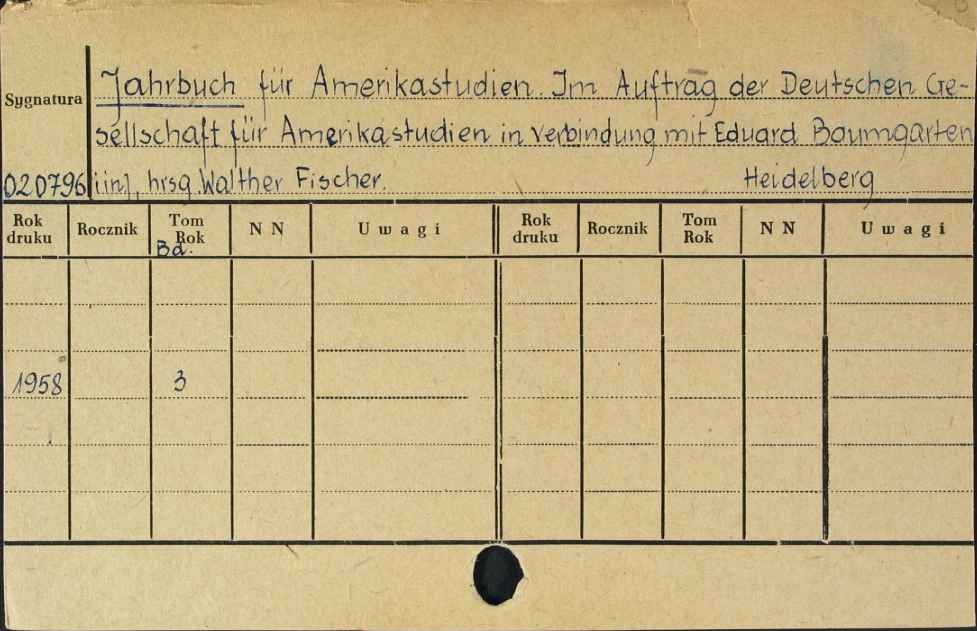 Jahrbuch für Amerikastudien. Im Auftrag der Deutschen Ge-
Sygnatura
sellschaft für Amerikastudien in Verbindung mit Eduard Baumgarten
020796 [i in], hrsg. Walther Fischer. Heidelberg
Rok druku Rocznik Tom Rok Bd. N N Uwagi Rok druku Rocznik Tom Rok N N Uwagi
1958 3